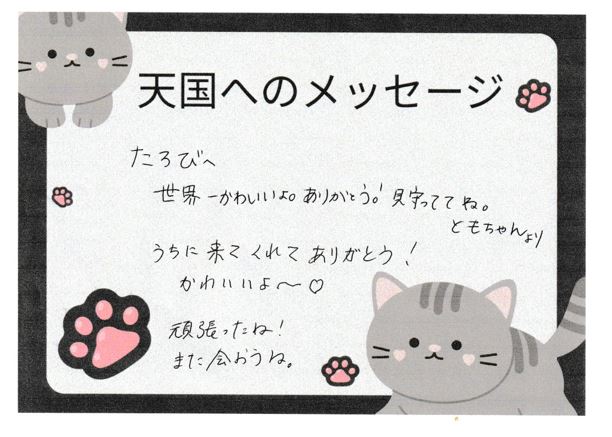 天国へのメッセージ
たろびへ
世界一かわいいよ。ありがとう！見守っててね。
ともちゃんより
うちに来てくれてありがとう！
かわいいよ〜♡
頑張ったね！
また会おうね。